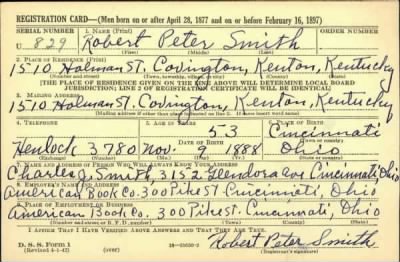 REGISTRATION CARD—(Men born on or after April 28, 1877 and on or before February 16, 1897)
SERIAL NUMBER 1. NAME (Print) ORDER NUMBER
U 829 Robert Peter Smith
(First) (Middle) (Last)
2. PLACE OF RESIDENCE (Print)
1510 Holman St. Covington, Kenton, Kentucky
(Number and street) (Town, township, village, or city) (County) (State)
[THE PLACE OF RESIDENCE GIVEN ON THE LINE ABOVE WILL DETERMINE LOCAL BOARD
JURISDICTION; LINE 2 OF REGISTRATION CERTIFICATE WILL BE IDENTICAL]
3. MAILING ADDRESS
1510 Holman St. Covington, Kenton, Kentucky
(Mailing address if other than place indicated on line 2. If same insert word same)
4. TELEPHONE 5. AGE IN YEARS 6. PLACE OF BIRTH
53 Cincinnati
DATE OF BIRTH (Town or county)
Hemlock 3780 Nov. 9 1888 Ohio
(Exchange) (Number) (Mo.) (Day) (Yr.) (State or country)
7. NAME AND ADDRESS OF PERSON WHO WILL ALWAYS KNOW YOUR ADDRESS
Charles J. Smith, 3152 Glendora ave Cincinnati Ohio
8. EMPLOYER'S NAME AND ADDRESS
American Book Co. 300 Pike St. Cincinnati, Ohio
9. PLACE OF EMPLOYMENT OR BUSINESS
American Book Co. 300 Pike St. Cincinnati, Ohio
(Number and street or R. F. D. number) (Town) (County) (State)
I AFFIRM THAT I HAVE VERIFIED ABOVE ANSWERS AND THAT THEY ARE TRUE.
D. S. S. Form 1
(Revised 4-1-42) (over) Robert Peter Smith
(Registrant's signature)